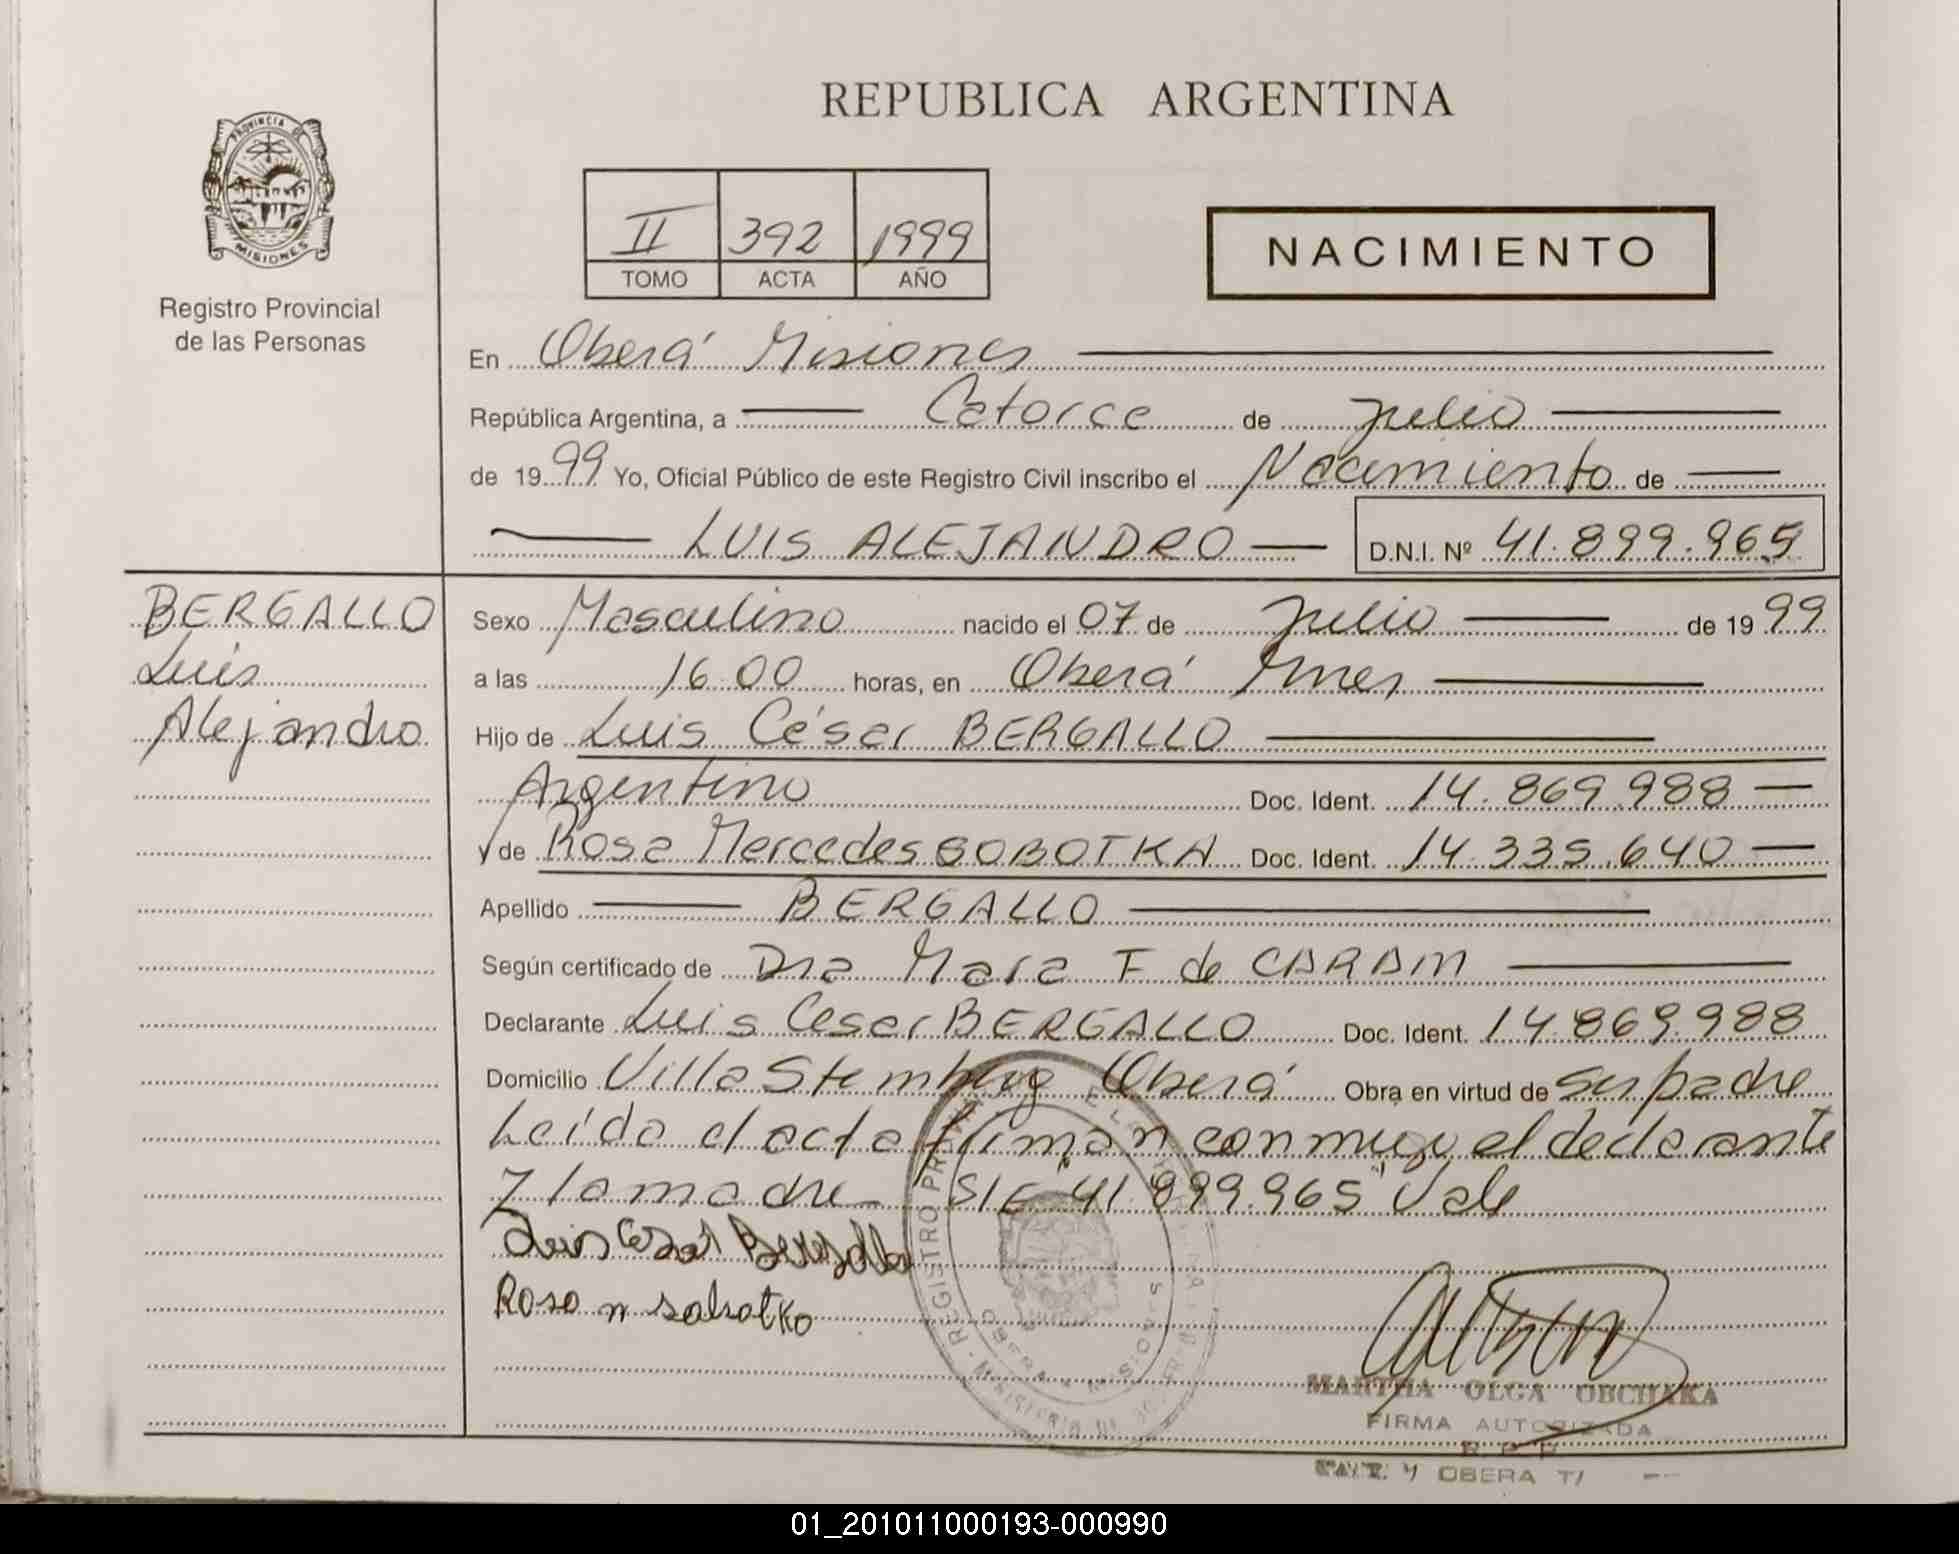 REPUBLICA ARGENTINA
PROVINCIA DE
MISIONES
Registro Provincial
de las Personas
II 392 1999
TOMO ACTA AÑO
NACIMIENTO
En Oberá Misiones
República Argentina, a Catorce de Julio
de 1999 Yo, Oficial Público de este Registro Civil inscribo el Nacimiento de
LUIS ALEJANDRO D.N.I. Nº 41.899.965
BERGALLO
Luis
Alejandro
Sexo Masculino nacido el 07 de Julio de 1999
a las 16.00 horas, en Oberá Mnes
Hijo de Luis César BERGALLO
Argentino Doc. Ident. 14.869.988
y de Rosa Mercedes SOBOTKA Doc. Ident. 14.335.640
Apellido BERGALLO
Según certificado de Dra Mara F. de CARAM
Declarante Luis Cesar BERGALLO Doc. Ident. 14.869.988
Domicilio Villa Stemberg Oberá Obra en virtud de ser padre
Leída el acta firman conmigo el declarante
y la madre S/E "41.899.965" Vale
Luis Cesar Bergallo
Rosa M Sobotka
MARTHA OLGA OBCHAKA
FIRMA AUTORIZADA
R P P
OBERA
01_201011000193-000990